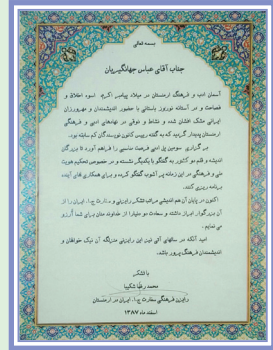 بسمه تعالی
جناب آقای عباس جهانگیریان
آسمان ادب و فرهنگ ارمنستان در میلاد پیامبر اکرم اسوه اخلاق و
فصاحت و در آستانه نوروز باستانی با حضور اندیشمندان و مهرورزان
ایرانی مشک افشان شده و نشاط و ذوقی در نهادهای ادبی و فرهنگی
ارمنستان پدیدار گردید که به گفته رییس کانون نویسندگان کم سابقه بود.
برگزاری سومین پل ادبی فرصت مناسبی را فراهم آورد تا بزرگان
اندیشه و قلم دو کشور به گفتگو با یکدیگر نشسته و در خصوص تحکیم هویت
ملی و فرهنگی در این زمانه پر آشوب گفتگو کرده و برای همکاری های آینده
برنامه ریزی کنند.
اکنون در پایان آن هم اندیشی مراتب تشکر رایزنی و سفارت ج.ا. ایران را از
آن بزرگوار ابراز داشته و سعادت دو دنیا را از خداوند منان برای شما آرزو
می نمایم.
امید آنکه در سالهای آتی نیز این رایزنی منزلگه آن نیک خواهان و
اندیشمندان فرهنگ پرور باشد.
با تشکر
محمد رضا شکیبا
رایزن فرهنگی سفارت ج.ا. ایران در ارمنستان
اسفند ماه ۱۳۸۷